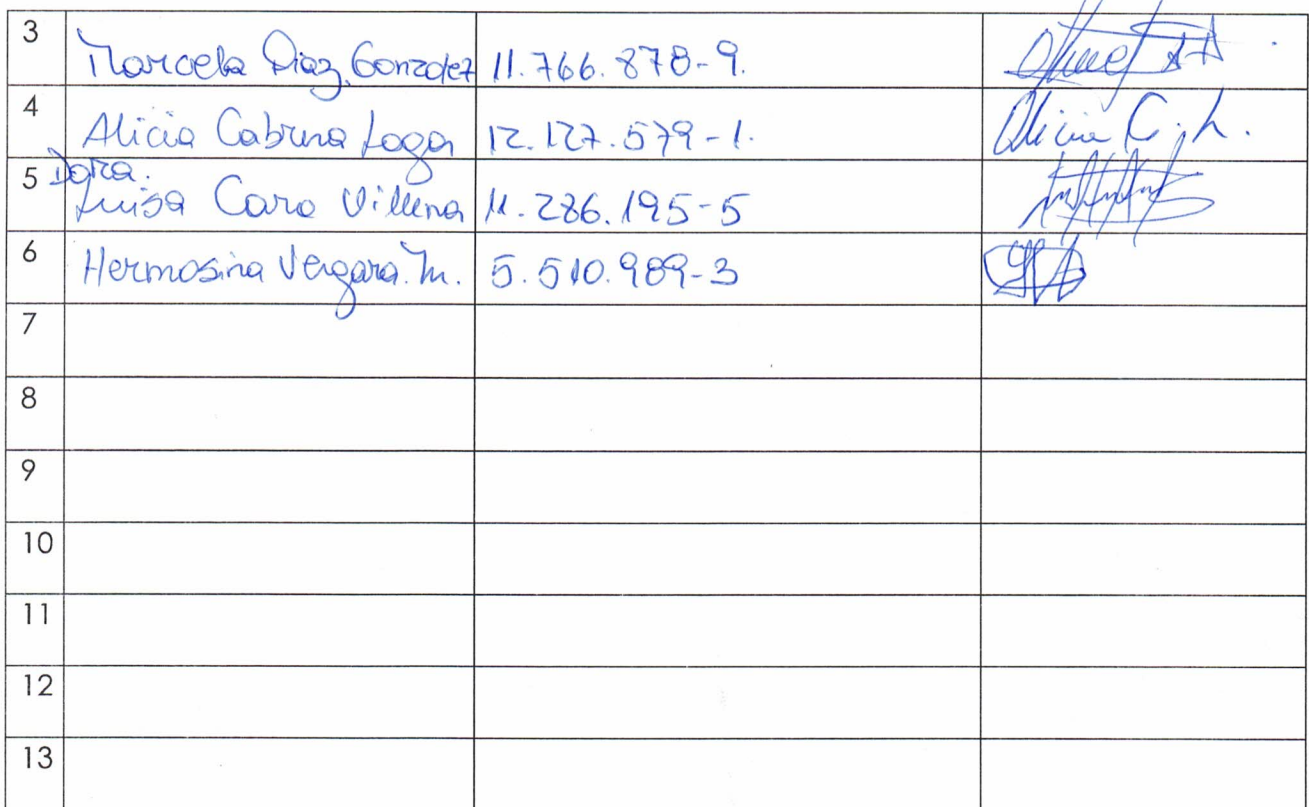 3 Marcela Diaz Gonzalez 11.766.878-9.
4 Alicia Cabrera 12.127.579-1. Alicia C. L.
Dora.
5 Luisa Caro Villena 11.286.195-5
6 Hermosina Vergara. M. 5.510.989-3
7
8
9
10
11
12
13